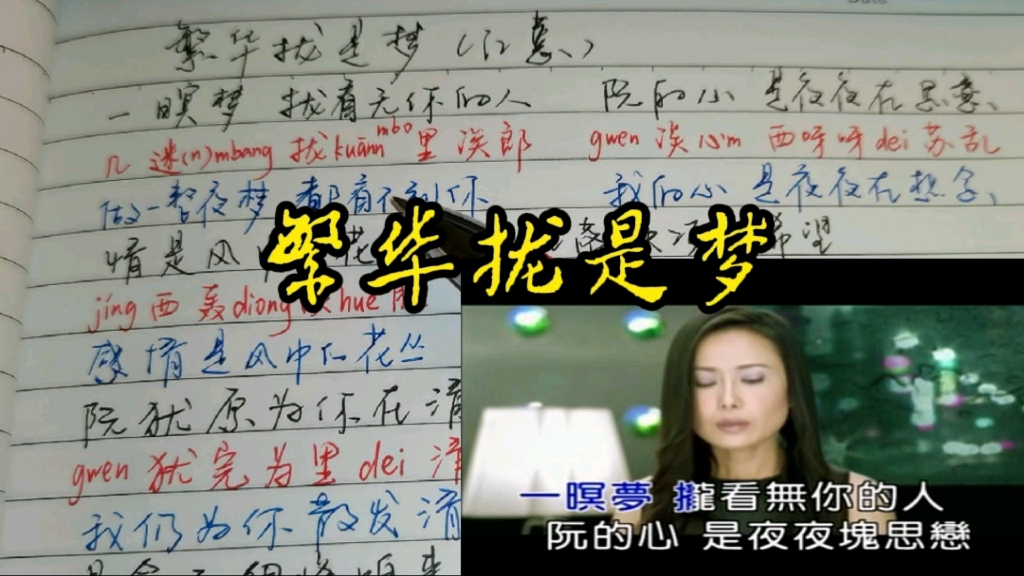 繁华拢是梦（江蕙）
一暝梦 拢看无你的人 阮的心 是夜夜在思恋
几迷(n)mbang 拢kuānn mbo里涘郎 gwen涘心m 西呀呀dei苏乱
做一整夜梦 都看不到你 我的心 是夜夜在想念
繁华拢是梦
情是风 花 希望
jíng西轰diong hue
感情是风中仁花丛
阮犹原为你在清
gwen犹完为里dei
我们为你散发清
一暝夢 攏看無你的人
阮的心 是夜夜塊思戀